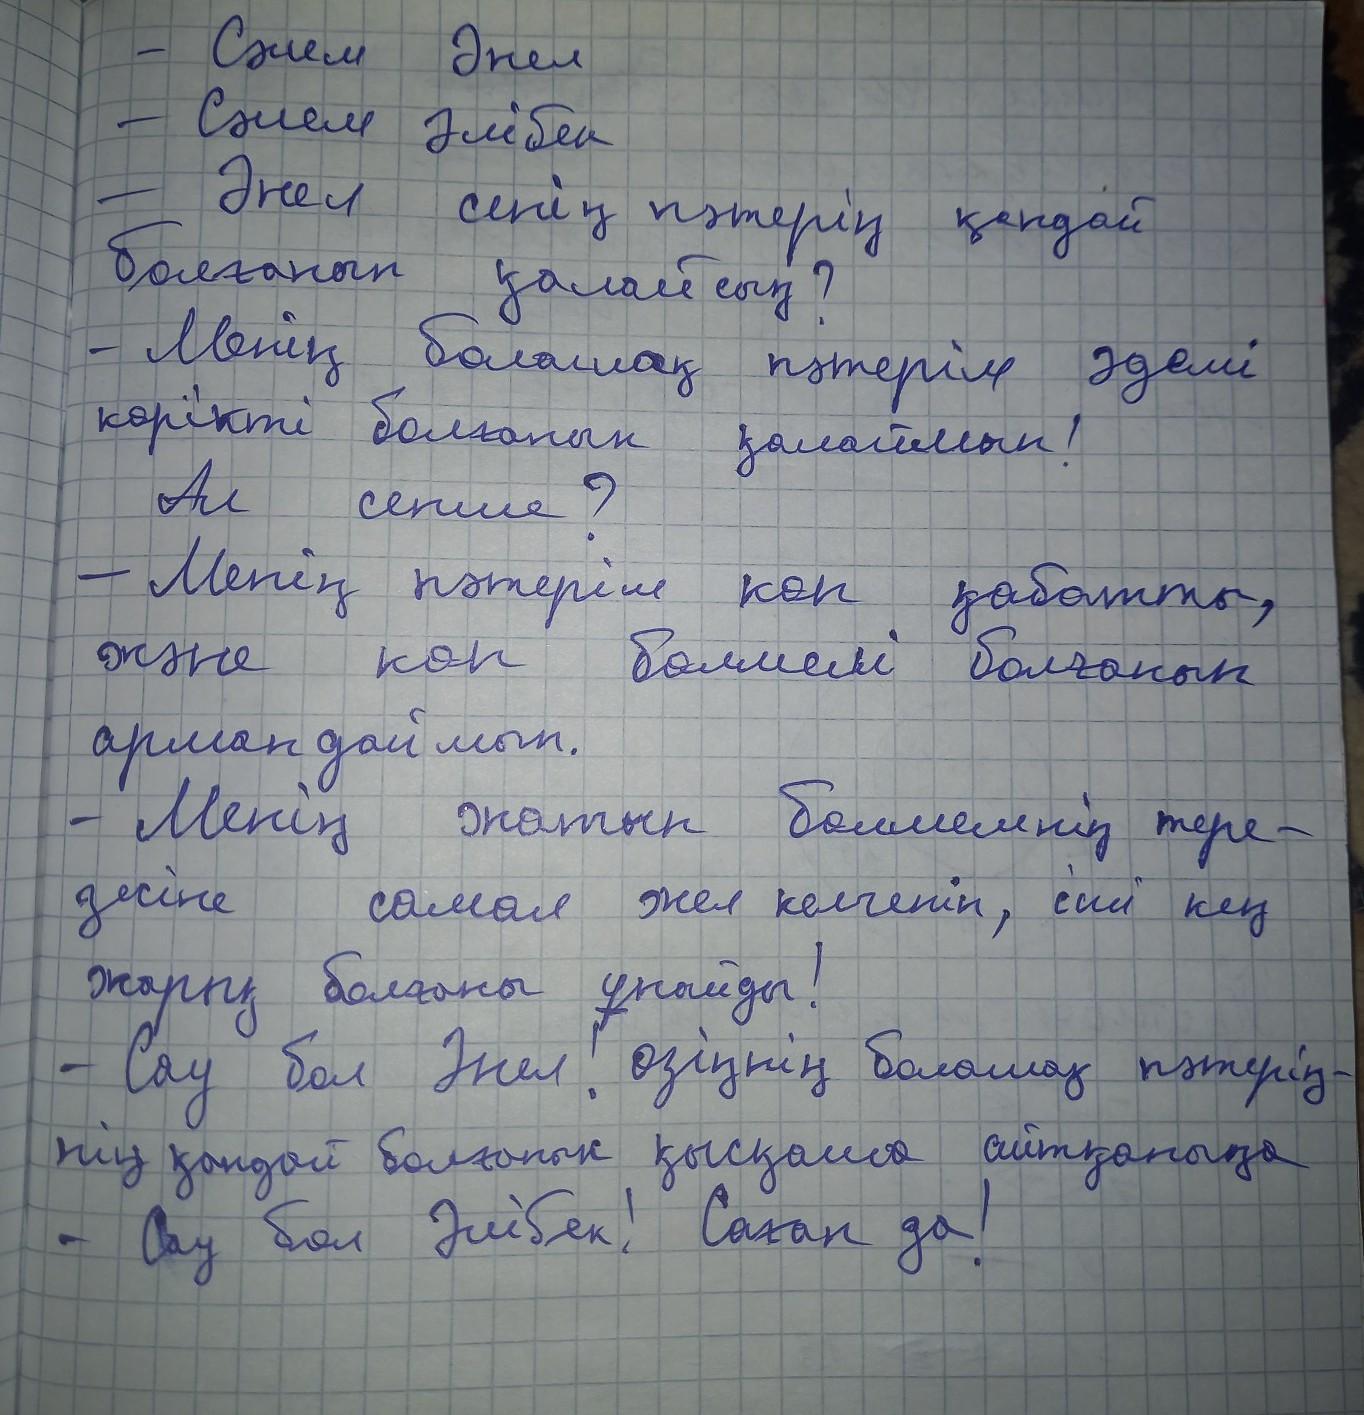 - Сәлем Әнел
- Сәлем Әлібек
- Әнел сенің пәтерің қандай
болғанын қалайсың?
- Менің болашақ пәтерім әдемі
көрікті болғанын қалаймын!
Ал сенше?
- Менің пәтерім көп қабатты,
және көп бөлмелі болғанын
армандаймын.
- Менің жатын бөлмемнің тере-
зесіне самал жел келгенін, іші кең
жарық болғаны ұнайды!
- Сау бол Әнел! өзіңнің болашақ пәтерің-
нің қандай болғанын қысқаша айтқаныңа
- Сау бол Әлібек! Саған да!